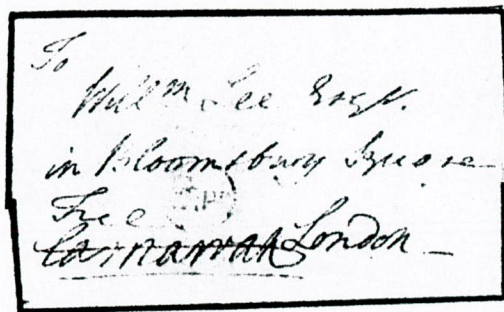 To
Will^m Lee Esqr.
in Bloomsbury Square
Free
Carnarvan London